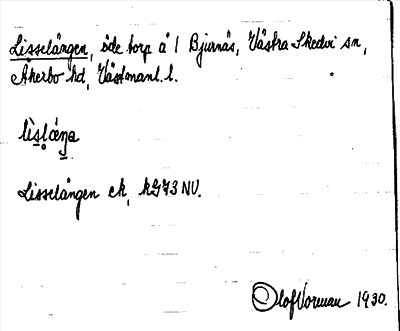 Lisselängen, öde torp å 1 Bjurnäs, Västra Skedvi sn,
Åkerbo hd, Västmanl. l.
Lisselängen ek, kG73 NV.
Olof Norman 1930.